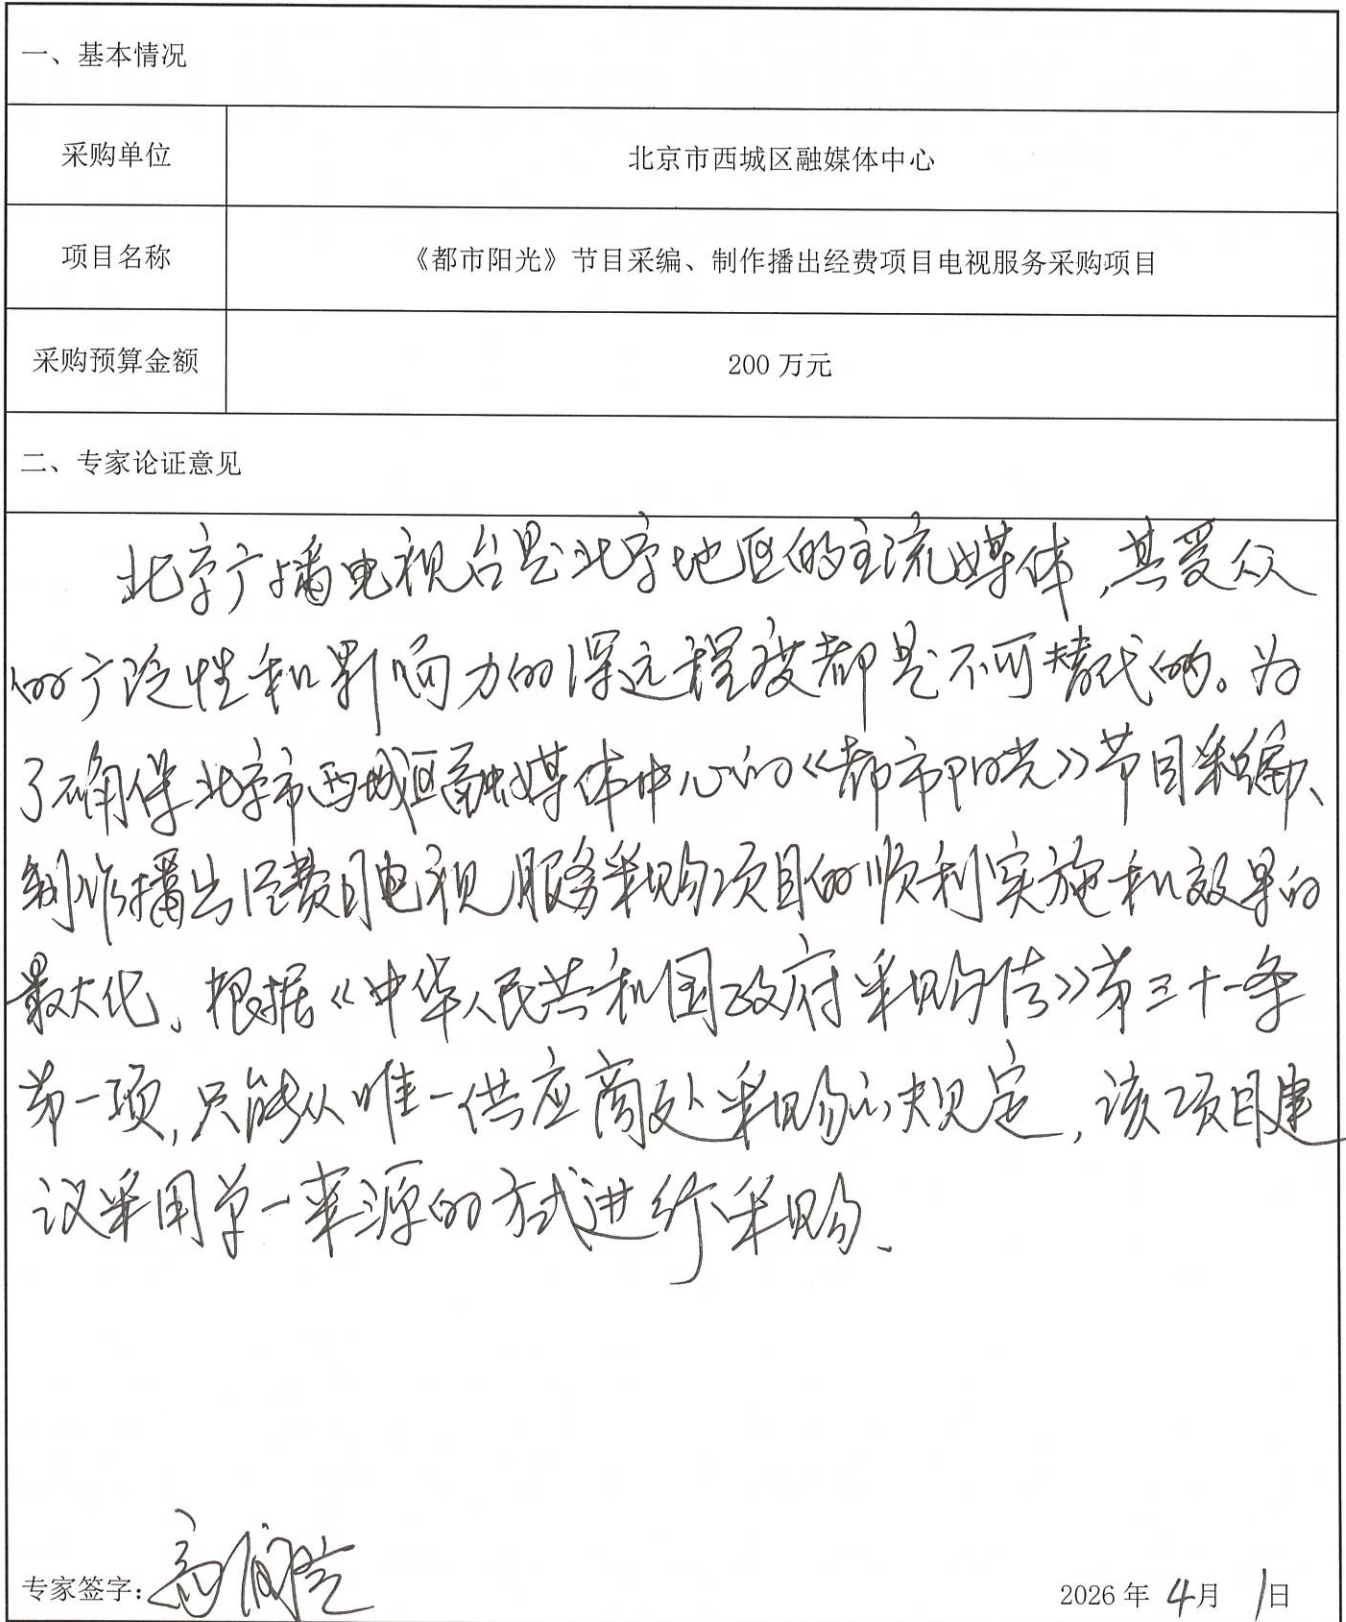 一、基本情况
采购单位
北京市西城区融媒体中心
项目名称
《都市阳光》节目采编、制作播出经费项目电视服务采购项目
采购预算金额
200 万元
二、专家论证意见
北京广播电视台是北京地区的主流媒体,其受众
的广泛性和影响力的深远程度都是不可替代的。为
了确保北京市西城区融媒体中心的《都市阳光》节目采编、
制作播出经费目电视服务采购项目的顺利实施和效果的
最大化。根据《中华人民共和国政府采购法》第三十一条
第一项,只能从唯一供应商处采购的规定,该项目建
议采用单一来源的方式进行采购。
专家签字:高
2026 年 4月 1日